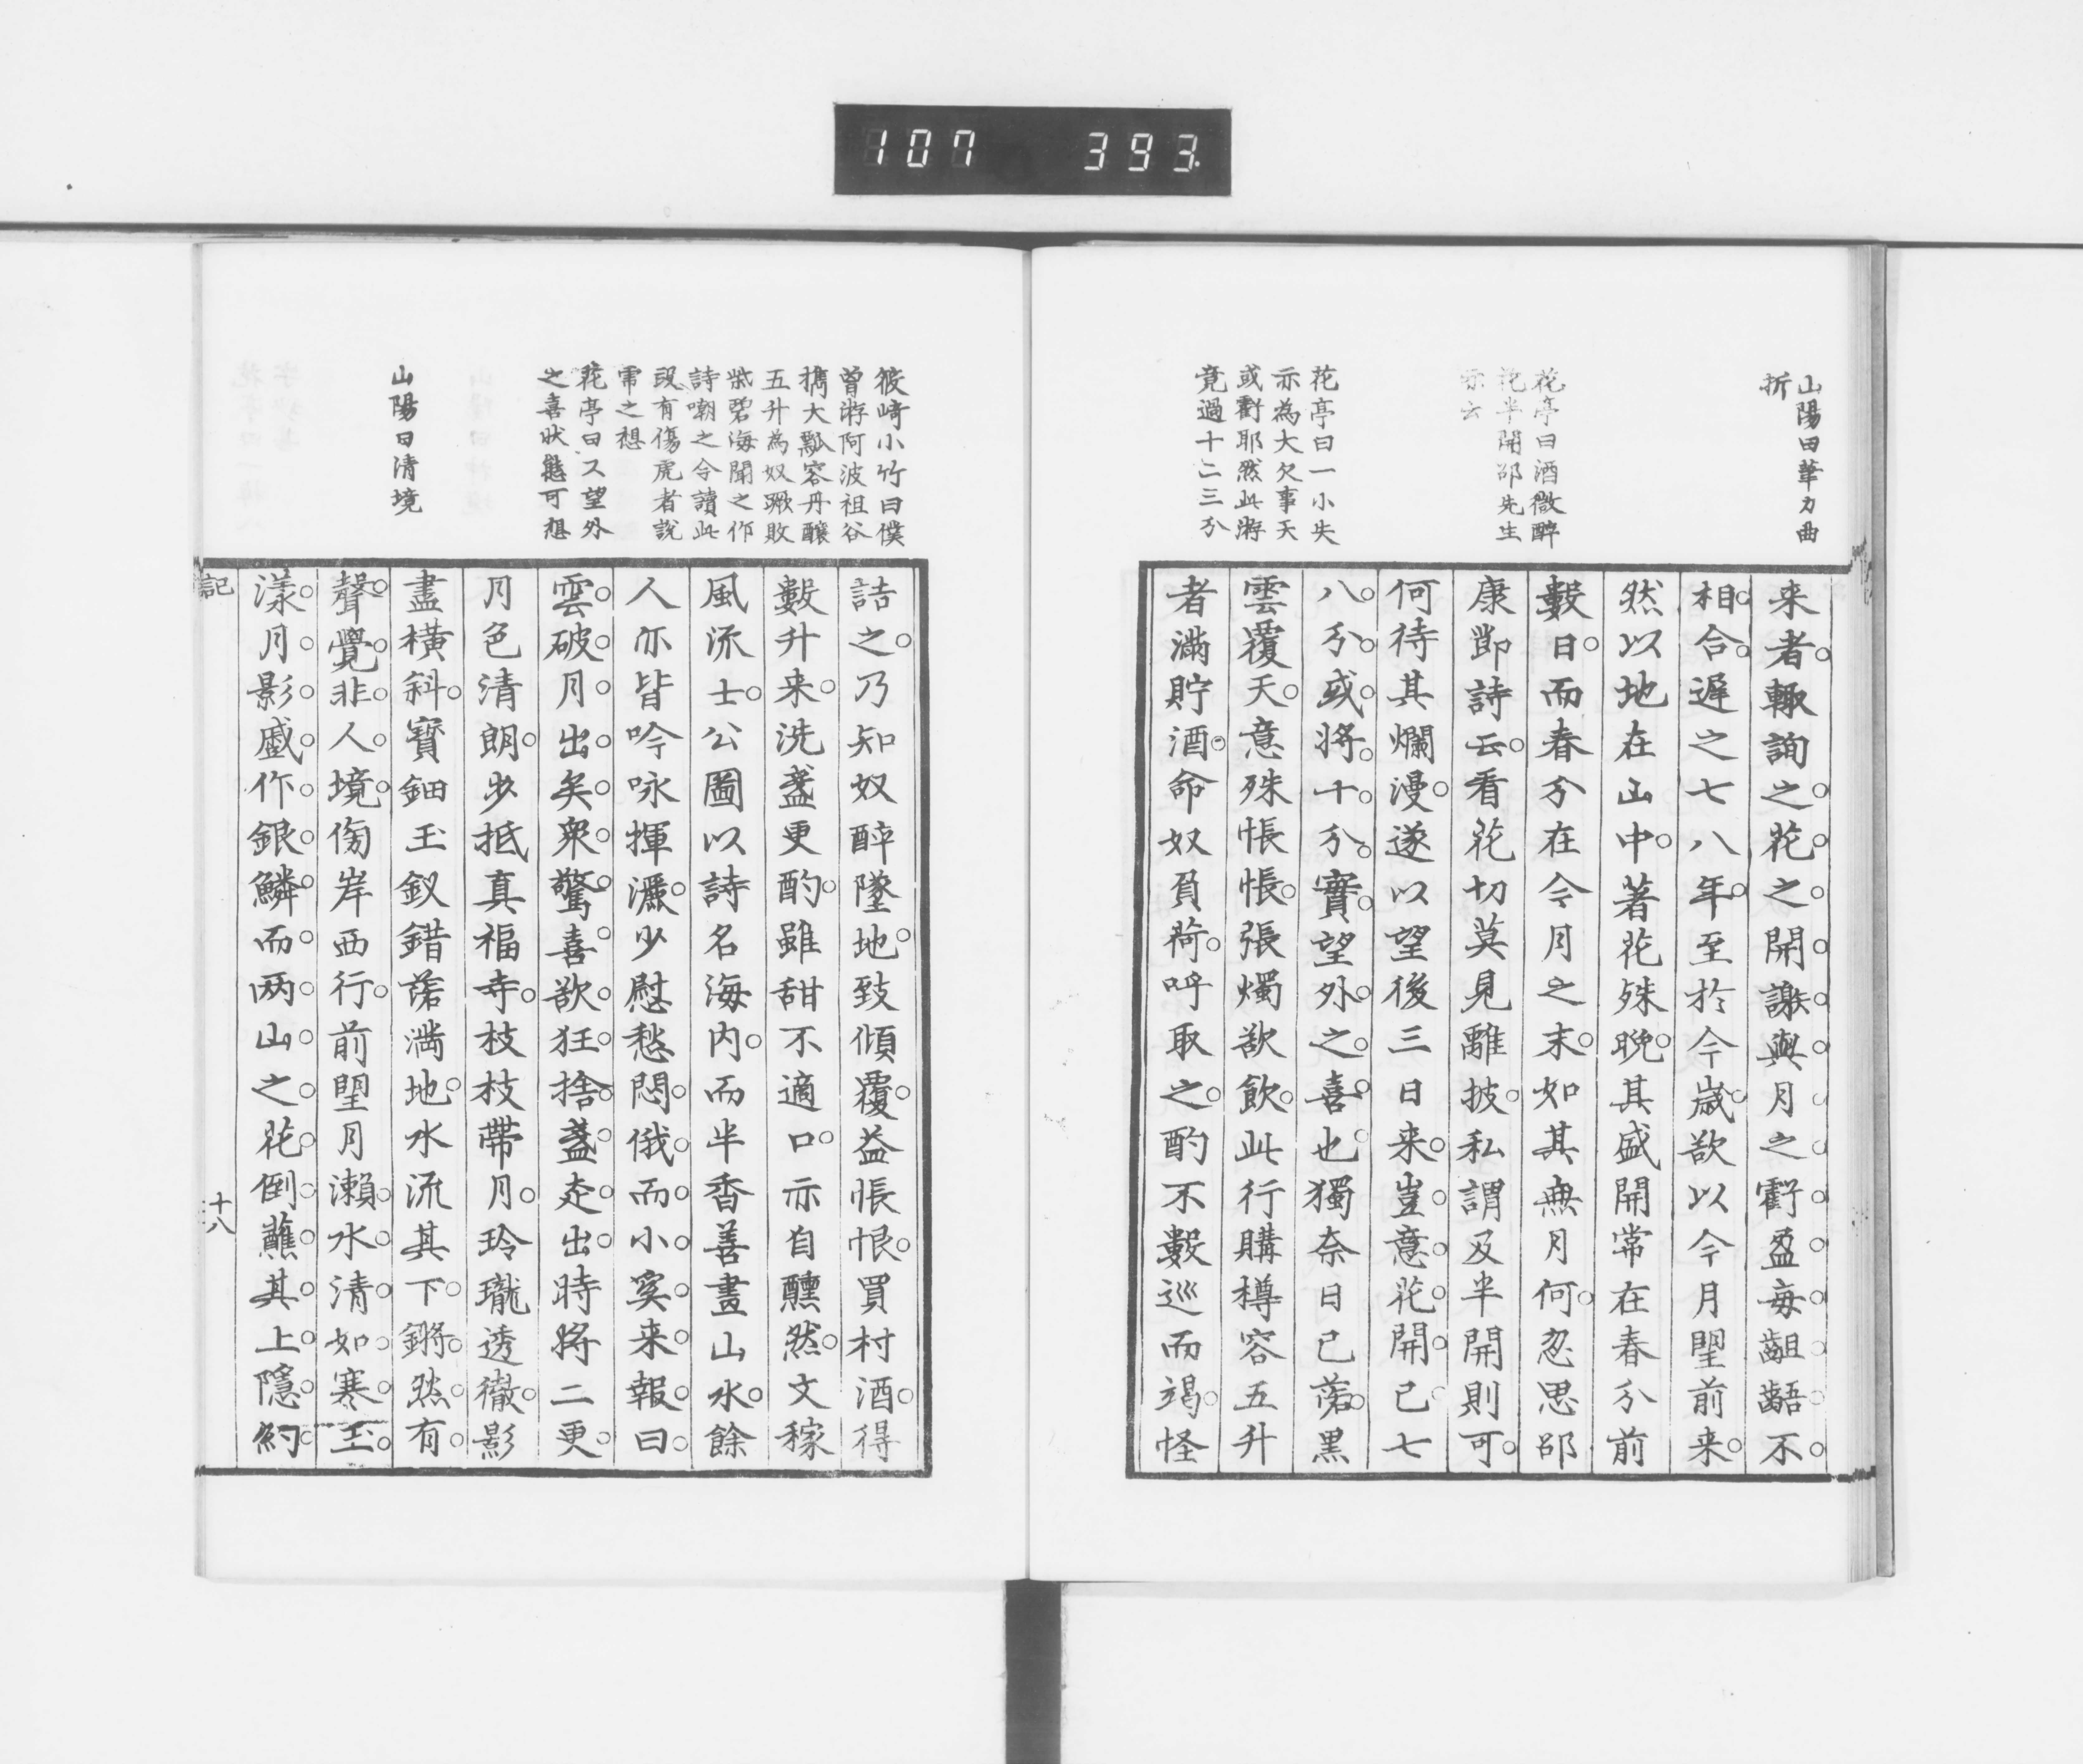 107 393
山陽曰筆力曲
折
花亭曰酒微醉
花半開邵先生
亦云
花亭曰一小失
亦為大欠事天
或虧耶然此游
竟過十二三分
来者輙詢之花之開謝與月之虧盈毎齟齬不
相合遅之七八年至於今歳欲以今月朢前来
然以地在山中著花殊晩其盛開常在春分前
數日而春分在今月之末如其無月何忽思邵
康節詩云看花切莫見離披私謂及半開則可
何待其爛漫遂以望後三日来豈意花開已七
八分或将十分實望外之喜也獨奈日已落黒
雲覆天意殊悵悵張燭欲飲此行購樽容五升
者滿貯酒命奴負荷呼取之酌不數巡而竭怪
筱崎小竹曰僕
曽游阿波祖谷
攜大瓢容丹釀
五升為奴蹶敗
柴碧海聞之作
詩嘲之今讀此
段有傷虎者說
虎之想
花亭曰又望外
之喜狀態可想
山陽曰清境
詰之乃知奴醉墜地致傾覆益悵恨買村酒得
數升来洗盞更酌雖甜不適口亦自醺然文稼
風流士公圖以詩名海内而半香善畫山水餘
人亦皆吟咏揮灑少慰愁悶俄而小奚来報曰
雲破月出矣衆驚喜欲狂捨盞走出時将二更
月色清朗歩抵真福寺枝枝帶月玲瓏透徹影
盡横斜寶鈿玉釵錯落滿地水流其下鏘然有
聲覺非人境傍岸西行前朢月瀬水清如寒玉
漾月影盛作銀鱗而两山之花倒蘸其上隱約
記
十八